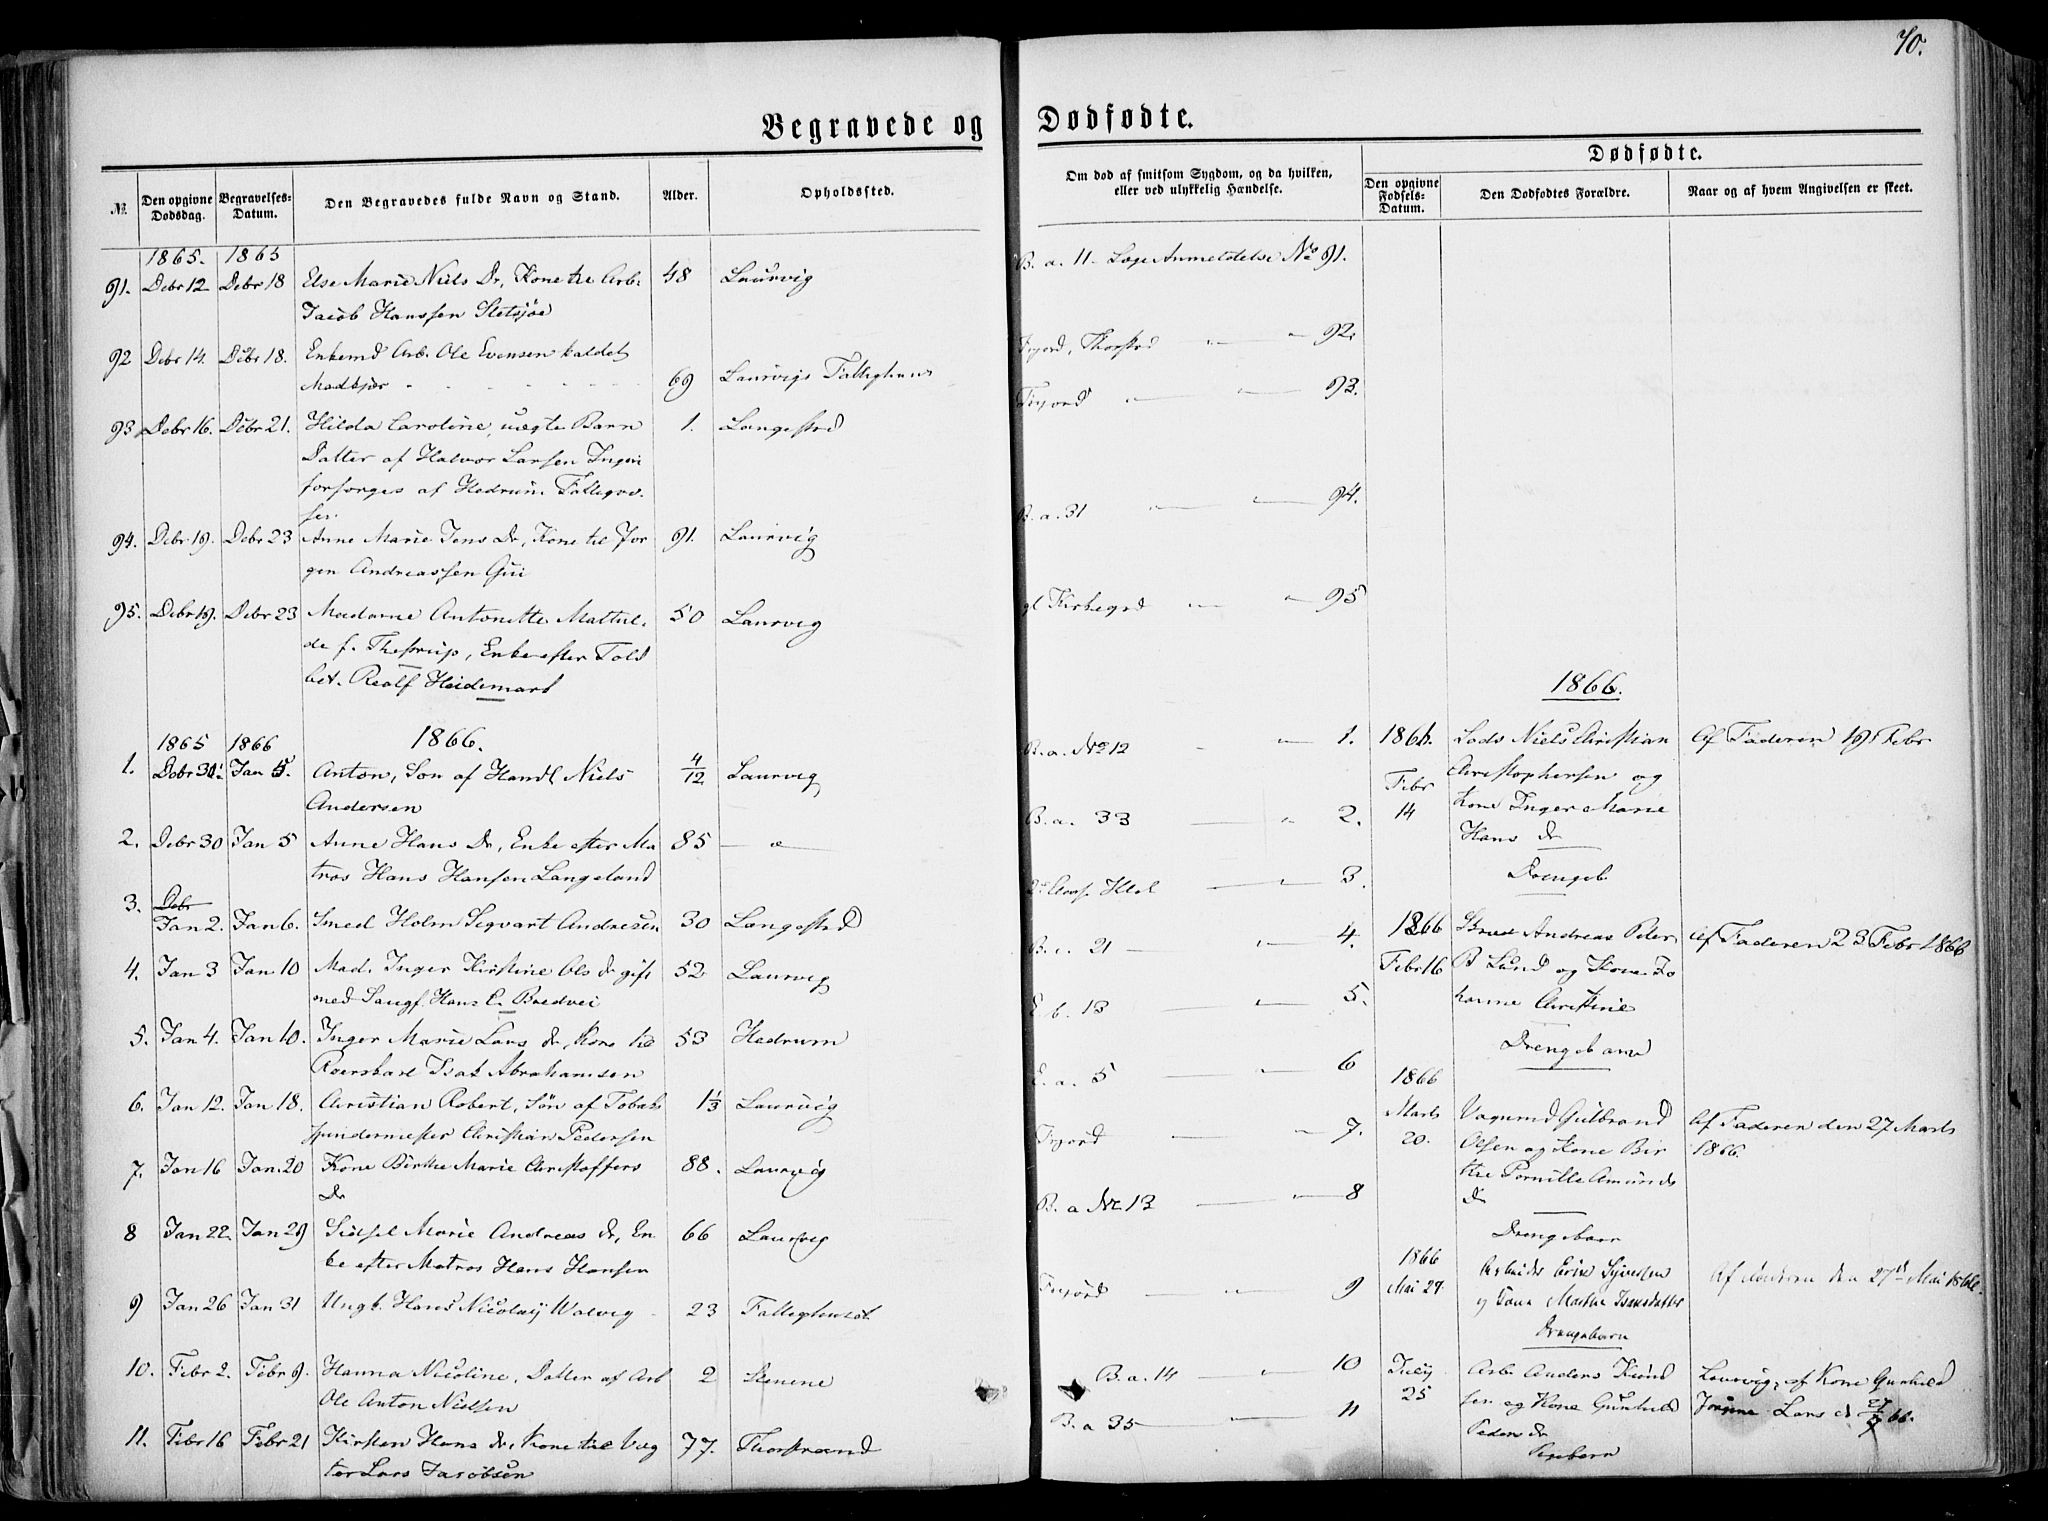 70.
Begravede og Dødfødte.
№
Den opgivne Dødsdag.
Begravelses-Datum.
Den Begravedes fulde Navn og Stand.
Alder.
Opholdssted.
Om død af smitsom Sygdom, og da hvilken, eller ved ulykkelig Hændelse.
Dødfødte.
Den opgivne Fødsels-Datum.
Den Dødfødtes Forældre.
Naar og af hvem Angivelsen er skeet.
1865. 1865
91. Debr 12 Debr 18 Else Marie Niels Dr, Kone til Arb.
Jacob Hanssen Sletsjøe
48 Laurvig
92 Debr 14. Debr 18. Enkemd Arb. Ole Evensen kaldet
Madkjær
69 Laurvigs Fattighuus
93 Debr 16. Debr 21. Hilda Caroline, uægte Barn
1. Langestrd
Datter af Halvor Larsen
forsørges af Hedrum Fattigvæ-
sen.
94. Debr 19. Debr 23 Anne Marie Jens Dr, Kone til Jør
gen Andreassen Gui
91. Laurvig
95. Debr 19. Debr 23 Madame Antonette Mathil-
de f. Thestrup, Enke efter Told
bet. Realf Heidemark
50 Laurvig
1866.
1865 1866
1. Debr 31. Jan 5. Anton, Søn af Handl. Niels
Andersen
4/12 Laurvig
2. Debr 30 Jan 5 Anne Hans Dr, Enke efter Ma
tros Hans Hansen Langeland
85
3. Jan 2. Jan 6. Smed Holm Segvart Andresen 30 Langestrd
4. Jan 3 Jan 10 Mad. Inger Kirstine Ols dr gift
med Hans C. Bredvei
52 Laurvig
5. Jan 4. Jan 10. Inger Marie Lars dr, Kone til
Roerskarl Isak Abrahamsen
53 Hedrum
6. Jan 12. Jan 18. Christian Robert, Søn af Tobak
spindermester Christian Pedersen
1 1/3 Laurvig
7. Jan 16 Jan 20 Kone Birthe Marie Christoffers
Dr
88. Laurvig
8 Jan 22. Jan 29 Sidsel Marie Andreas dr, En
ke efter Matros Hans Hansen
66 Laurvig
9 Jan 26 Jan 31 Ungk. Hans Nicolaij Walvig 23 Fattighuset
10. Febr 2. Febr 9. Hanna Nicoline, Datter af Arb
Ole Anton Nielsen
2 Stenene
11. Febr 16 Febr 21 Kirsten Hans dr, Kone til Væg
ter Lars Jacobsen
77. Thorstrand
B. a. 11 Læge Anmeldelse No 91.
Frijord, Thorstrd 92.
Frijord 93.
B. a. 31 94.
gl Kirkegrd 95
B. a. No 12 1.
B. a. 33 2.
3.
B. c. 21 4.
E b. 13 5.
E. a. 5 6
Frijord 7.
B. a No 13 8
Frijord 9
B. a. 14 10
B. a 35 11
1866.
1866. Febr 14
Lods Niels Christian
Christophersen og
Kone Inger Marie
Hans dr
Drengeb
Af Faderen 19 Febr
1866 Febr 16
Andreas Peter
B Lund og Kone Jo
hanne Christine
Drengebarn
Af Faderen 23 Febr 1866
1866 Marts 20.
Vognmd Gulbrand
Olsen og Kone Bir
the Pernille Amunds
dr
Drengebarn
Af Faderen den 27 Marts
1866.
1866 Mai 27.
Arbeider Erik Syvertsen
og Kone Marthe Isaksdatter
Drengebarn
Af den 27de Mai 1866.
Julij 25
Arb. Anders Knud
sen og Kone Gunhild
Peders dr
Pigebarn
Laurvig, af Kone Gunhild
Lars d 27/7 66.